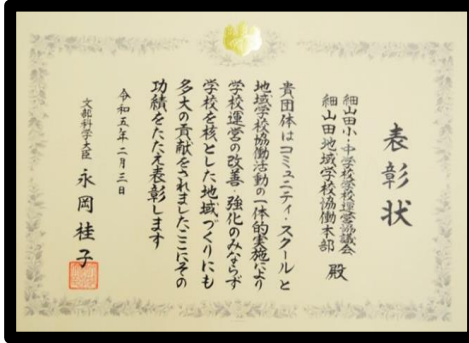 表彰状
細山田小・中学校学校運営協議会
細山田地域学校協働本部 殿
貴団体はコミュニティ・スクールと
地域学校協働活動の一体的実施により
学校運営の改善・強化のみならず
学校を核とした地域づくりにも
多大の貢献をされましたここにその
功績をたたえ表彰します
令和五年二月三日
文部科学大臣 永岡桂子